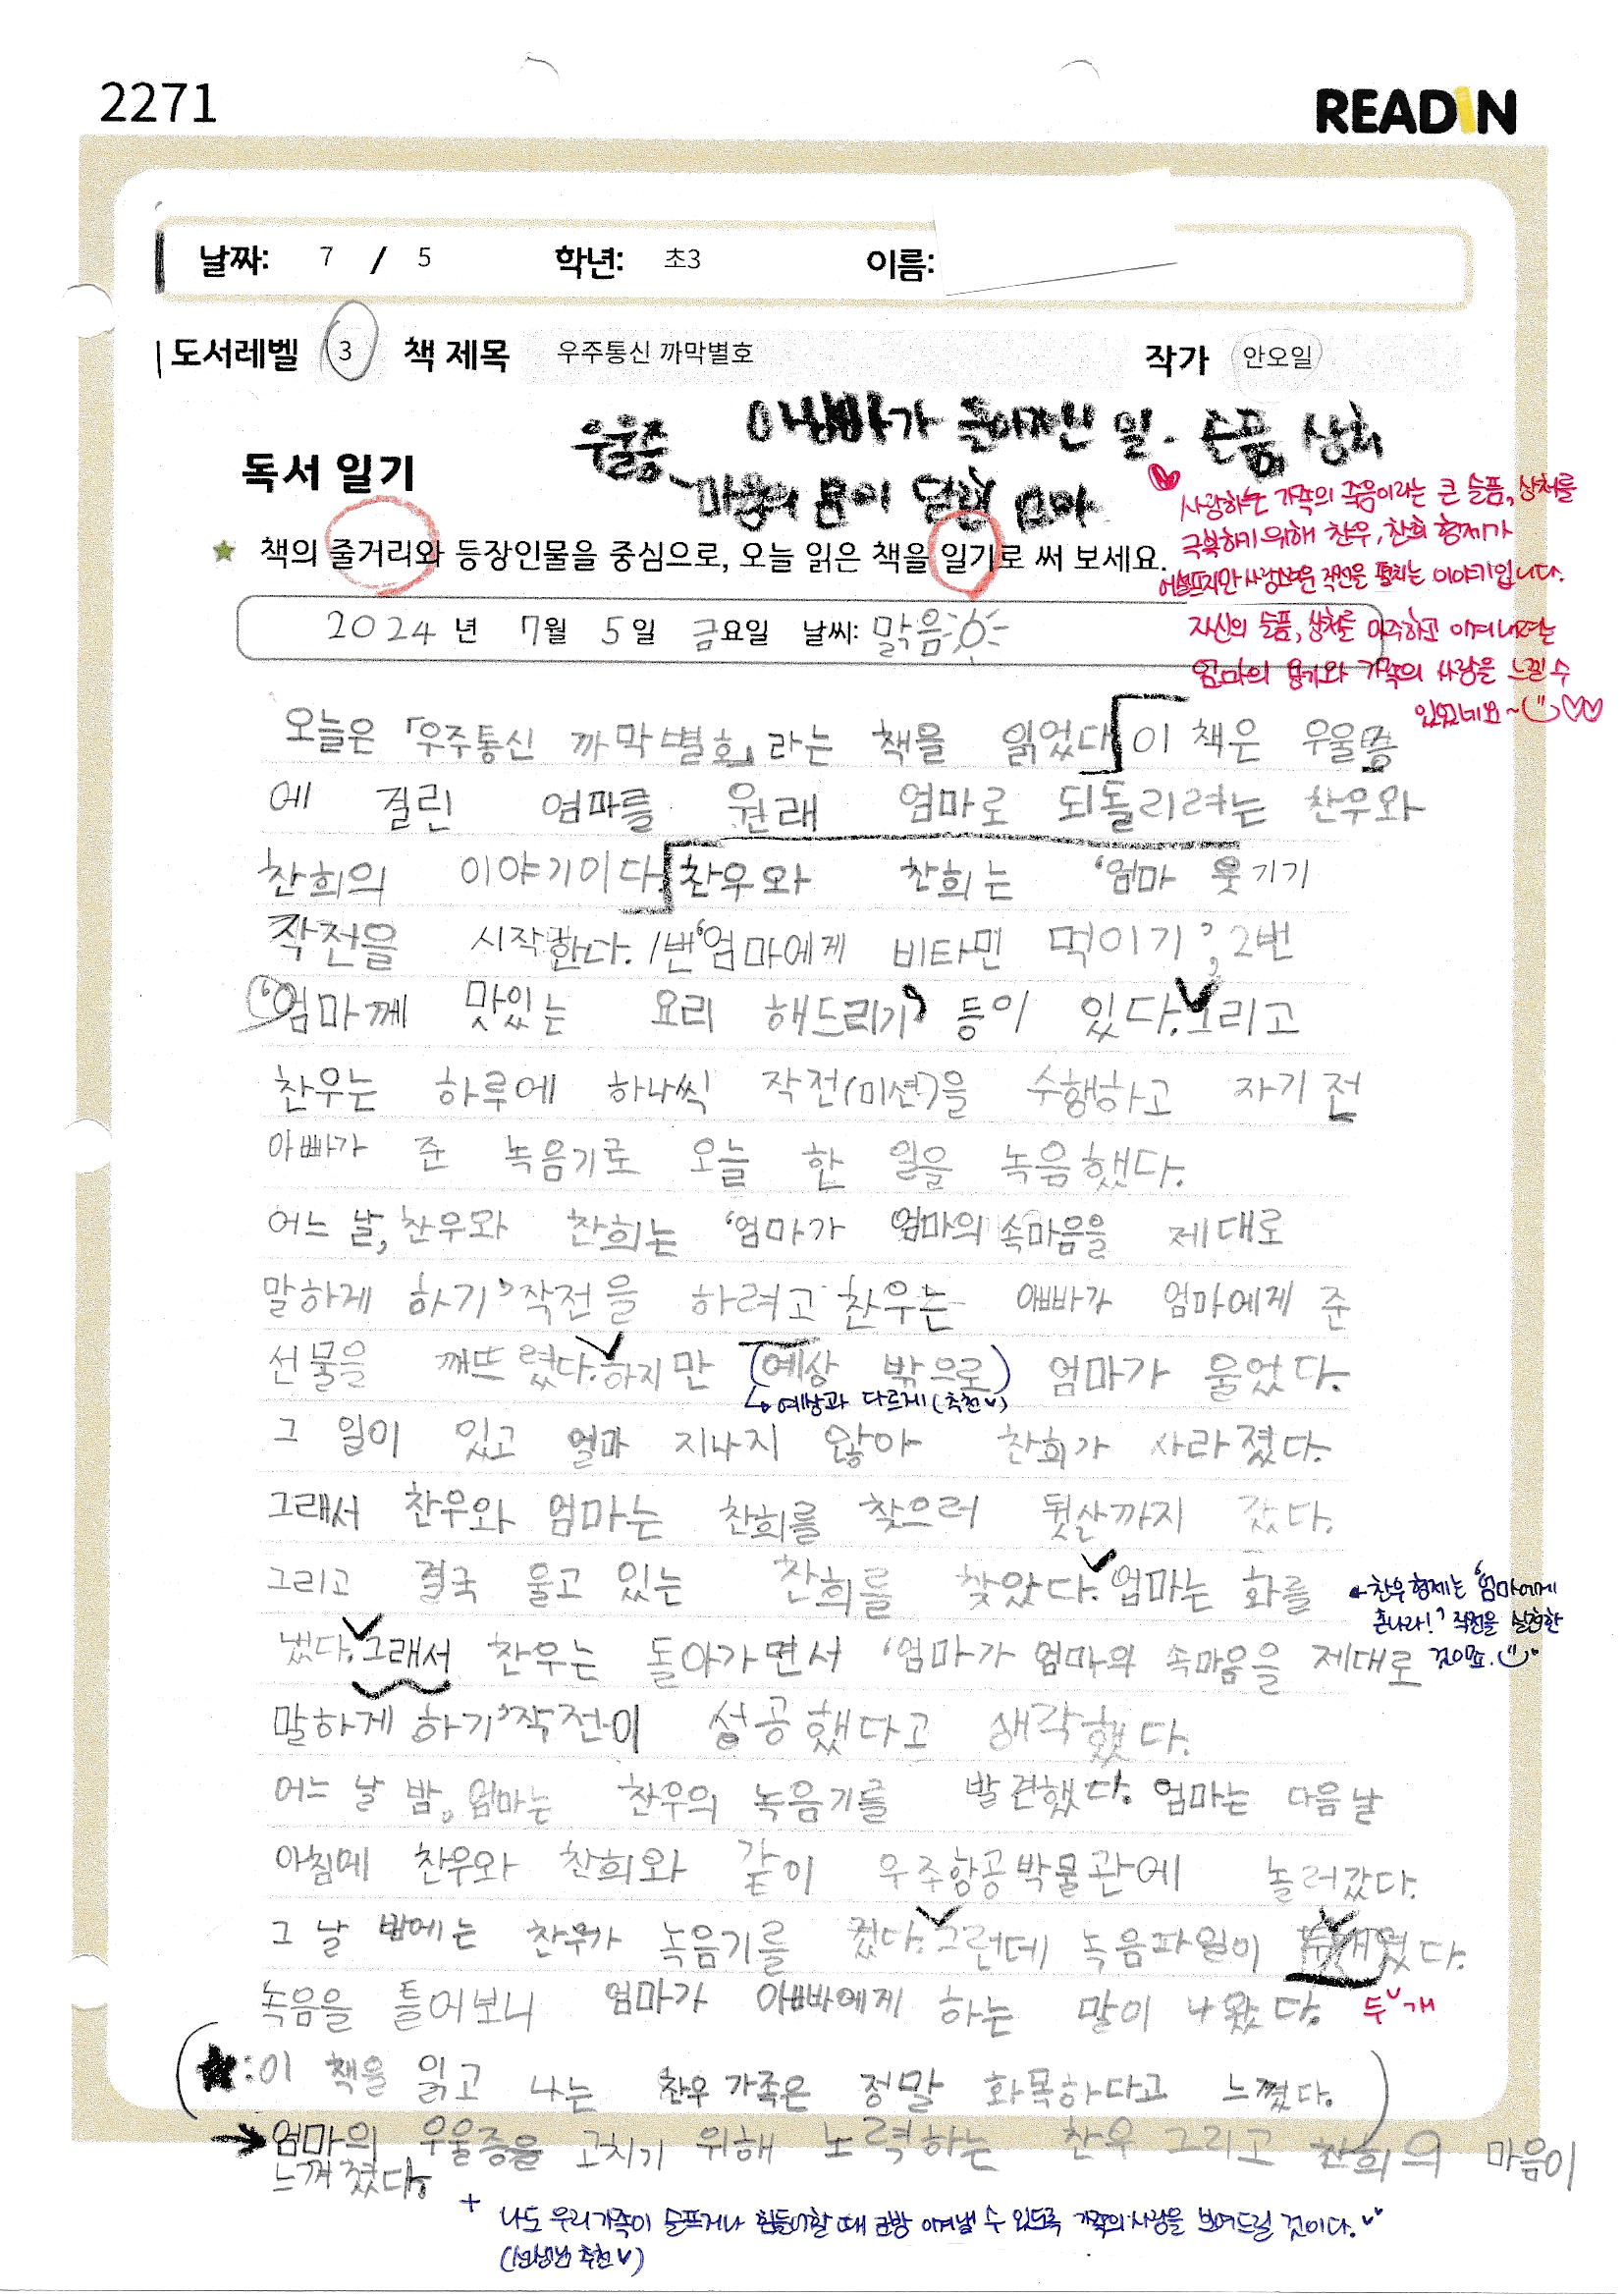 2271
READIN
날짜: 7 / 5 학년: 초3 이름:
도서레벨 3 책 제목 우주통신 까막별호 작가 안오일
우울증 아빠가 돌아가신 일. 슬픔, 상처
마음의 문이 닫힌 엄마
독서 일기
사랑하는 가족의 죽음이라는 큰 슬픔, 상처를
극복하기 위해 찬우, 찬희 형제가
어설프지만 사랑스러운 작전을 펼치는 이야기입니다.
자신의 슬픔, 상처를 마주하고 이겨내려는
엄마의 용기와 가족의 사랑을 느낄 수
있었네요~
★ 책의 줄거리와 등장인물을 중심으로, 오늘 읽은 책을 일기로 써 보세요.
2024 년 7월 5일 금요일 날씨: 맑음
오늘은 「우주통신 까막별호」라는 책을 읽었다 이 책은 우울증
에 걸린 엄마를 원래 엄마로 되돌리려는 찬우와
찬희의 이야기이다. 찬우와 찬희는 '엄마 웃기기
작전을 시작한다. 1번 '엄마에게 비타민 먹이기', 2번
'엄마께 맛있는 요리 해드리기' 등이 있다. 그리고
찬우는 하루에 하나씩 작전(미션)을 수행하고 자기 전
아빠가 준 녹음기로 오늘 한 일을 녹음했다.
어느 날, 찬우와 찬희는 '엄마가 엄마의 속마음을 제대로
말하게 하기' 작전을 하려고 찬우는 아빠가 엄마에게 준
선물을 깨뜨렸다. 하지만 (예상 밖으로) 엄마가 울었다.
↳ 예상과 다르게 (추천)
그 일이 있고 얼마 지나지 않아 찬희가 사라졌다.
그래서 찬우와 엄마는 찬희를 찾으러 뒷산까지 갔다.
그리고 결국 울고 있는 찬희를 찾았다. 엄마는 화를
찬우 형제는 '엄마에게
혼나라!' 작전을 실현한
것이죠.
냈다. 그래서 찬우는 돌아가면서 '엄마가 엄마의 속마음을 제대로
말하게 하기' 작전이 성공했다고 생각했다.
어느 날 밤, 엄마는 찬우의 녹음기를 발견했다. 엄마는 다음날
아침에 찬우와 찬희와 같이 우주항공박물관에 놀러갔다.
그 날 밤에는 찬우가 녹음기를 켰다. 그런데 녹음파일이 였다.
두 개
녹음을 들어보니 엄마가 아빠에게 하는 말이 나왔다.
(★: 이 책을 읽고 나는 찬우 가족은 정말 화목하다고 느꼈다.)
→ 엄마의 우울증을 고치기 위해 노력하는 찬우 그리고 찬희의 마음이
느껴졌다.
+ 나도 우리가족이 슬프거나 힘들어할 때 금방 이겨낼 수 있도록 가족의 사랑을 보여드릴 것이다.
(선생님 추천)